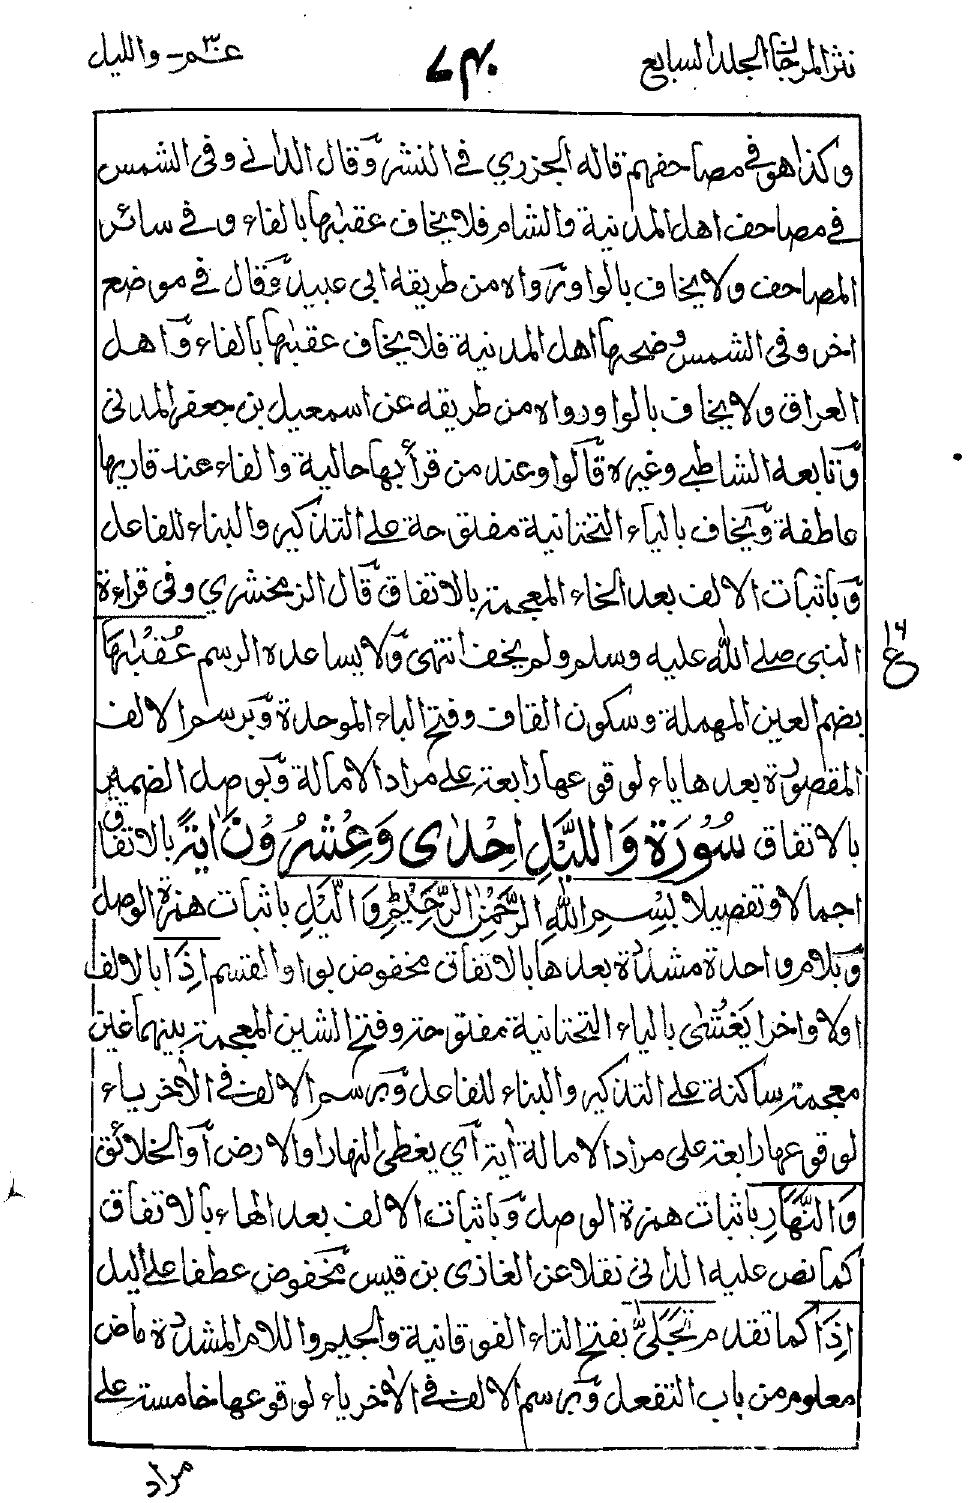 نثر المرجان الجلد السابع
۷۴۰
عم۳۰ - والليل
وكذا هو في مصاحفهم قاله الجزري في النشر وقال الداني وفى الشمس
في مصاحف اهل المدنية والشام فلا يخاف عقبٰها بالفاء و في سائر
المصاحف ولا يخاف بالواو ورواه من طريقه ابى عبيد وقال في موضع
اخر وفى الشمس وضحٰها اهل المدنية فلا يخاف عقبٰها بالفاء و اهل
العراق ولا يخاف بالواو ورواه من طريقه عن اسمعيل بن جعفر المدنى
وتابعه الشاطبي وغيره قالوا وعند من قرأ بها حالية والفاء عند قاريها
عاطفة ويخاف بالياء التحتانية مفتوحة على التذكير والبناء للفاعل
وباثبات الالف بعد الخاء المعجمة بالاتفاق قال الزمخشري وفى قراءة
النبى صلى الله عليه وسلم ولم يخف انتهى ولا يساعده الرسم عُقْبٰهَا
بضم العين المهملة وسكون القاف وفتح الباء الموحدة وبرسم الالف
المقصورة بعدها ياء لوقوعها رابعة على مراد الامالة وبوصل الضمير
بالاتفاق سُوْرَة وَاللَّيْلِ اِحْدٰى وَعِشْرُوْنَ اٰيَةً بالاتفاق
اجمالا وتفصيلا بِسْمِ اللهِ الرَّحْمٰنِ الرَّحِيْمِ وَالَّيْلِ باثبات همزة الوصل
وبلام واحدة مشددة بعدها بالاتفاق مخفوض بواو القسم اِذَا بالالف
اولا واخرا يَغْشٰى بالياء التحتانية مفتوحة وفتح الشين المعجمة بينهما غين
معجمة ساكنة على التذكير والبناء للفاعل وبرسم الالف في الاٰخر ياء
لوقوعها رابعة على مراد الامالة اٰية اي يغطى النهار او الارض او الخلائق
وَالنَّهَارِ باثبات همزة الوصل وباثبات الالف بعد الهاء بالاتفاق
كما نص عليه الدانى نقلا عن الغازى بن قيس مخفوض عطفا على اليل
اِذَا كما تقدم تَجَلّٰى بفتح التاء الفوقانية والجيم واللام المشددة ماض
معلوم من باب التفعل وبرسم الالف في الاٰخر ياء لوقوعها خامسة على
۱۶
ع
مراد